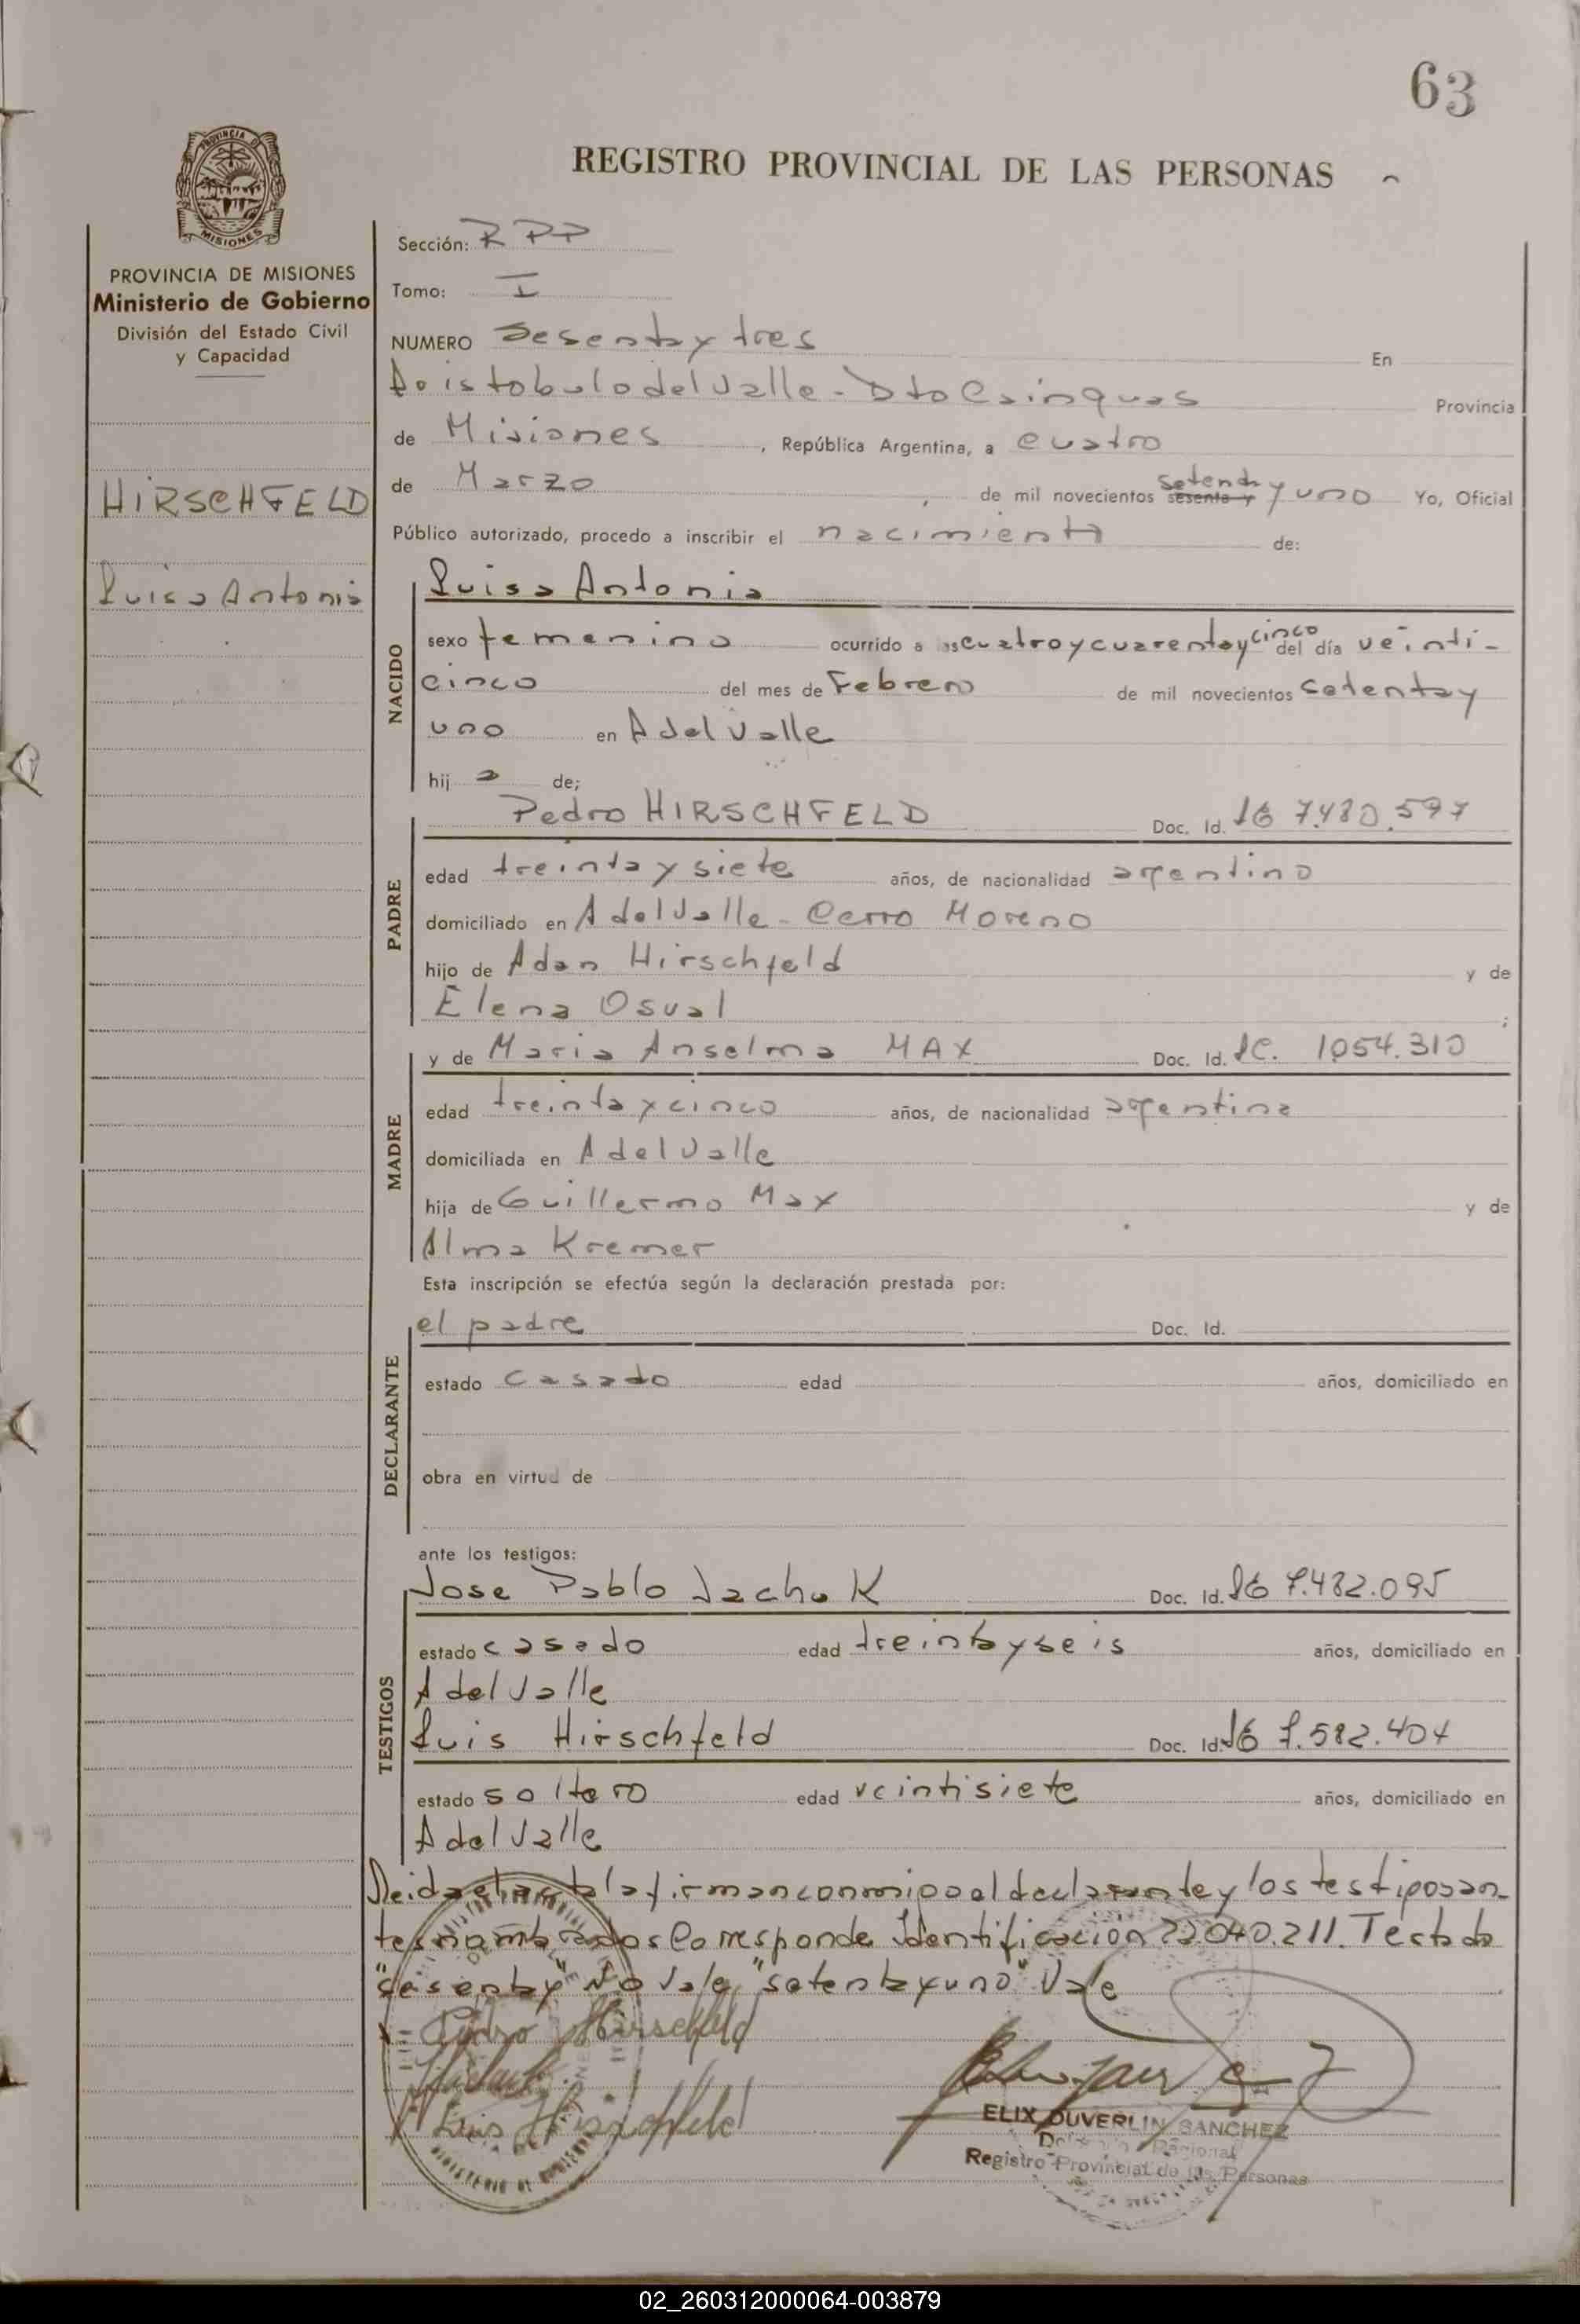 63
REGISTRO PROVINCIAL DE LAS PERSONAS
PROVINCIA DE
MISIONES
PROVINCIA DE MISIONES
Ministerio de Gobierno
División del Estado Civil
y Capacidad
HIRSCHFELD
Luisa Antonia
Sección: R P P
Tomo: I
NUMERO Sesenta y tres En
Aristobulo del Valle - Dto Cainguas Provincia
de Misiones, República Argentina, a cuatro
de Marzo, de mil novecientos sesenta y setenta y uno Yo, Oficial
Público autorizado, procedo a inscribir el nacimiento de:
NACIDO
Luisa Antonia
sexo femenino ocurrido a las cuatro y cuarenta y cinco del día veinti-
cinco del mes de Febrero de mil novecientos setenta y
uno en A del Valle
hij a de;
PADRE
Pedro HIRSCHFELD Doc. Id. 7.480.597
edad treinta y siete años, de nacionalidad argentino
domiciliado en A del Valle - Cerro Moreno
hijo de Adan Hirschfeld y de
Elena Osual ;
MADRE
y de Maria Anselma MAX Doc. Id. LC. 1.054.310
edad treinta y cinco años, de nacionalidad argentina
domiciliada en A del Valle
hija de Guillermo Max y de
Alma Kremer
Esta inscripción se efectúa según la declaración prestada por:
DECLARANTE
el padre Doc. Id.
estado casado edad años, domiciliado en
obra en virtud de
ante los testigos:
TESTIGOS
Jose Pablo Doc. Id. 7.482.095
estado casado edad treinta y seis años, domiciliado en
A del Valle
Luis Hirschfeld Doc. Id. 7.582.404
estado soltero edad veintisiete años, domiciliado en
A del Valle
Leida el acta la firman conmigo el declarante y los testigos an-
tes nombrados Corresponde Identificacion 22.040.211. Testado
"sesenta y" No Vale, "setenta y uno" Vale
Pedro Hirschfeld
Luis Hirschfeld
ELIX DUVERLIN SANCHEZ
Registro Provincial de las Personas
02_260312000064-003879